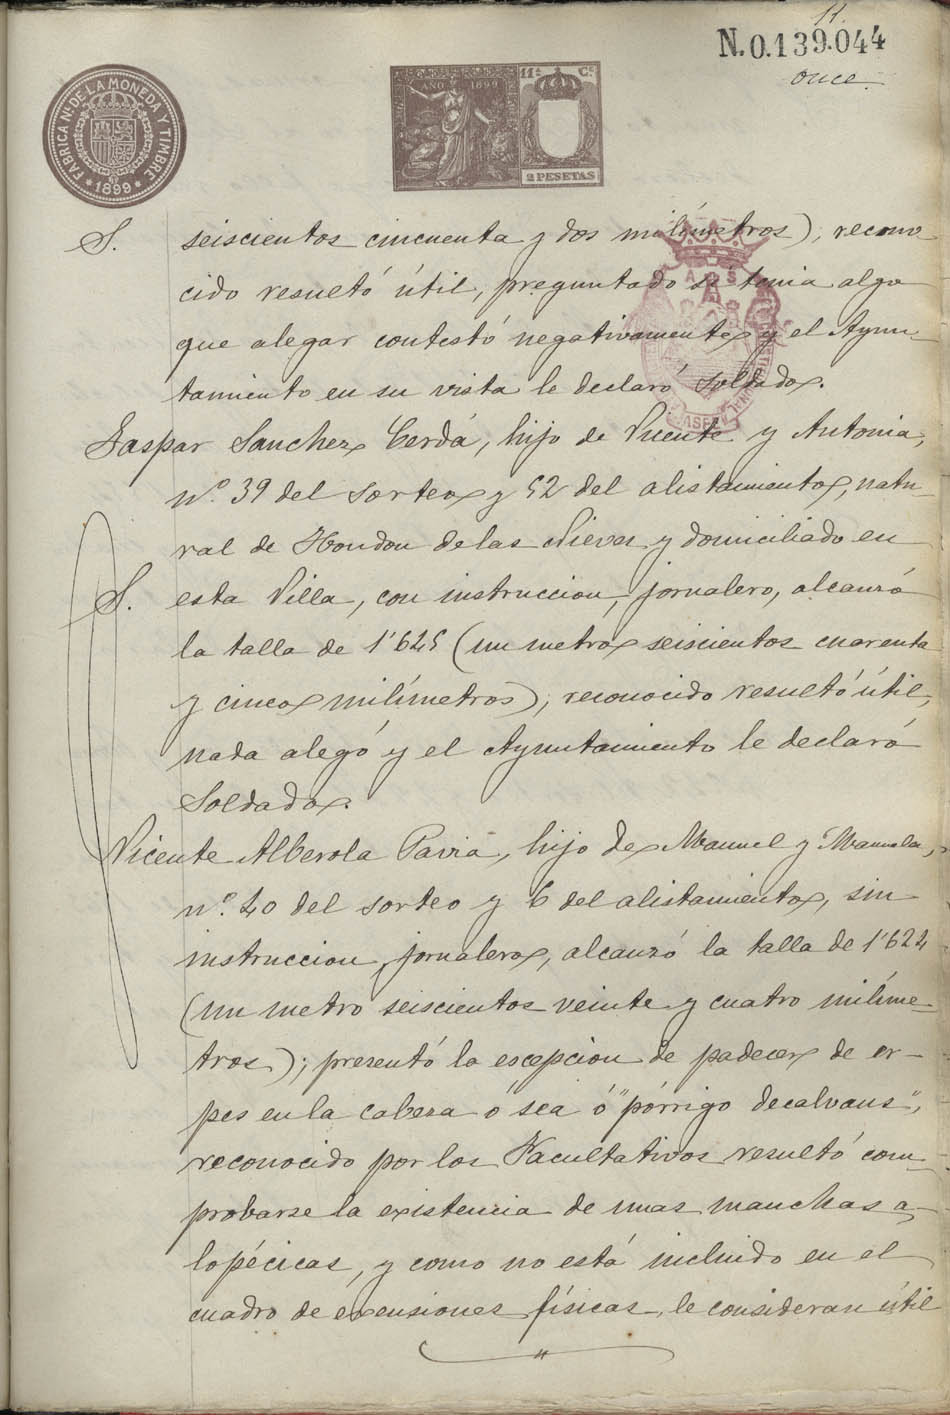 11.
N.0.139.044
once
FABRICA Nl. DE LA MONEDA Y TIMBRE
1899
AÑO 1899
11ª Cª
2 PESETAS
S. seiscientos cincuenta y dos milímetros); recono-
cido resultó útil, preguntado si tenia algo
que alegar contestó negativamente y el Ayun-
tamiento en su vista le declaró Soldado.
Gaspar Sanchez Cerdá, hijo de Vicente y Antonia,
nº. 39 del sorteo y 52 del alistamiento, natu-
ral de Hondon de las Nieves y domiciliado en
S. esta Villa, con instruccion, jornalero, alcanzó
la talla de 1'645 (un metro seiscientos cuarenta
y cinco milímetros); reconocido resultó útil,
nada alegó y el Ayuntamiento le declaró
Soldado.
Vicente Alberola Pavia, hijo de Manuel y Manuela,
nº. 40 del sorteo y 6 del alistamiento, sin
instruccion, jornalero, alcanzó la talla de 1'624
(un metro seiscientos veinte y cuatro milíme-
tros); presentó la escepcion de padecer de er-
pes en la cabeza ó sea ó "pórrigo decalvans",
reconocido por los Facultativos resultó com-
probarse la existencia de unas manchas a-
lopécicas, y como no está incluido en el
cuadro de exensiones físicas, le consideran útil